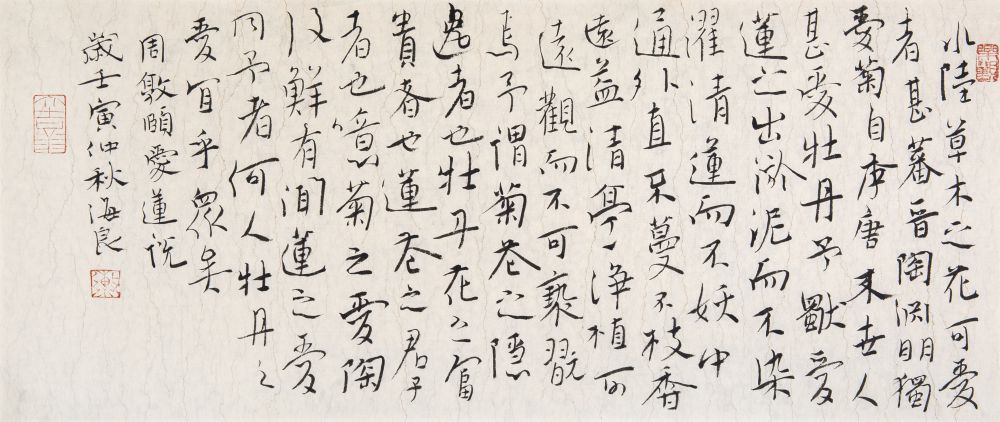 水陸草木之花可愛
者甚蕃晉陶渊明獨
愛菊自李唐来世人
甚愛牡丹予獸愛
蓮之出淤泥而不染
濯清蓮而不妖中
通外直不蔓不枝香
遠益清亭亭淨植可
遠觀而不可褻翫
焉予謂菊花之隱
逸者也牡丹花之富
貴者也蓮花之君子
者也噫菊之愛陶
後鮮有聞蓮之愛
同予者何人牡丹之
愛宜乎眾矣
周敦頤愛蓮说
歲壬寅仲秋海良